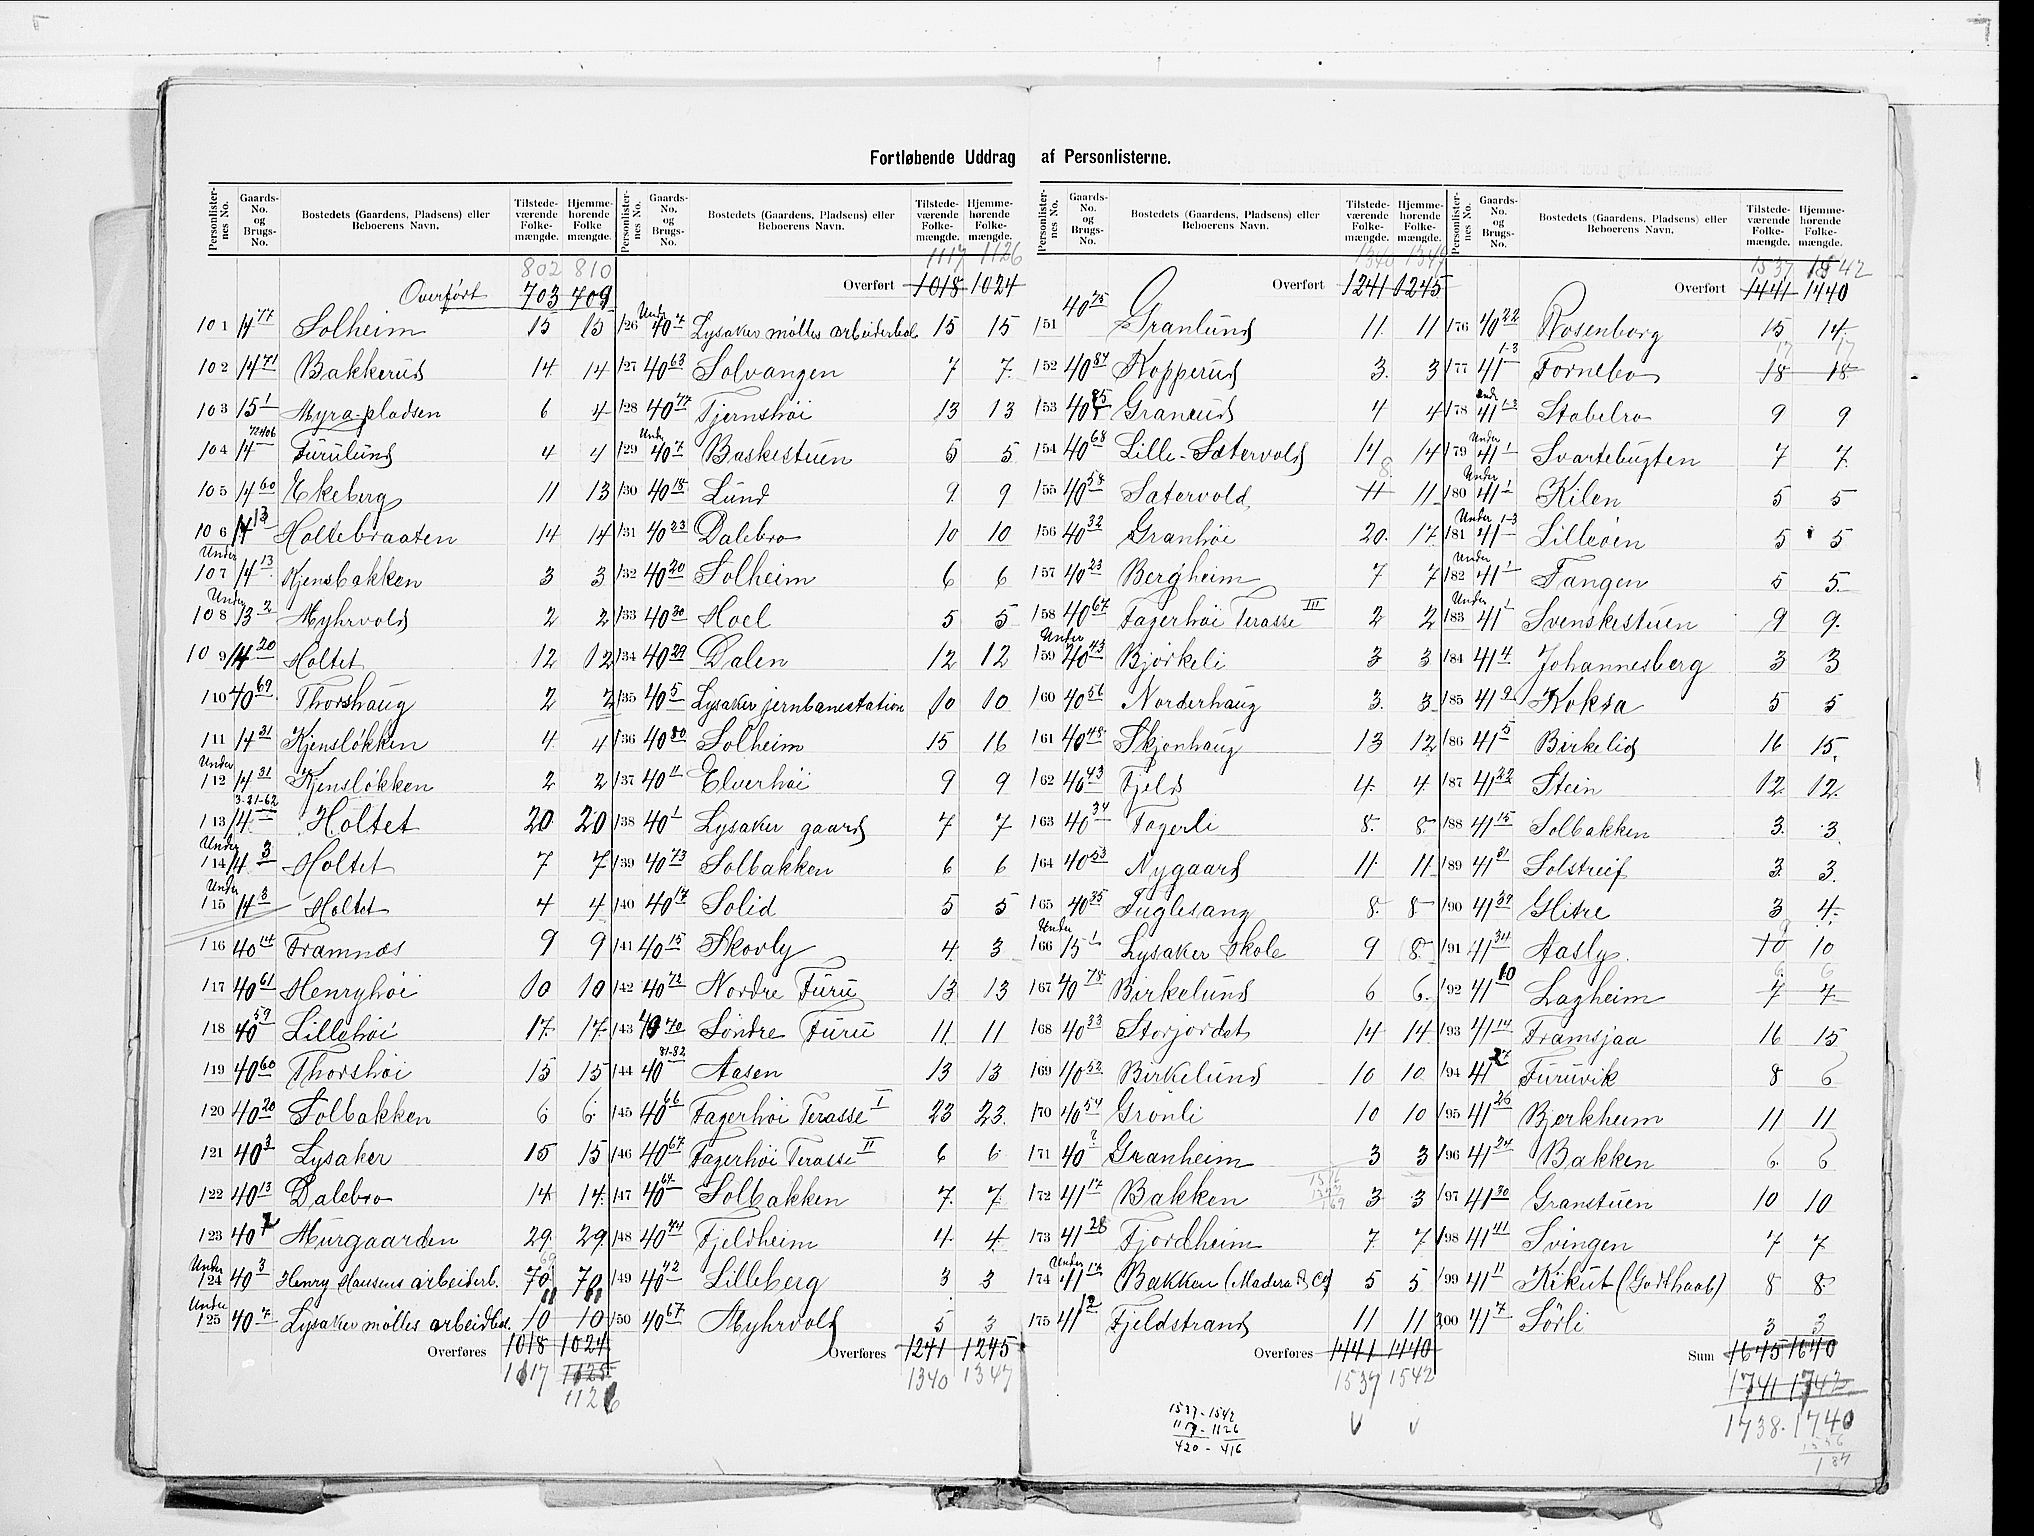 Fortløbende Uddrag af Personlisterne.
Personlisternes No. Gaards-No. og Brugs-No. Bostedets (Gaardens, Pladsens) eller Beboerens Navn. Tilstedeværende Folkemængde. Hjemmehørende Folkemængde.
802 810
Overført 703 709
101 14 77 Solheim 15 15
102 14 71 Bakkerud 14 14
103 15 1 Myra-pladsen 6 4
104 14 Furulund 4 4
105 14 60 Ekeberg 11 13
106 14 13 Holtebraaten 14 14
Under
107 14 13 Kjensbakken 3 3
Under
108 13 2 Myhrvold 2 2
109 14 20 Holtet 12 12
110 40 69 Thorshaug 2 2
111 14 31 Kjensløkken 4 4
Under
112 14 31 Kjensløkken 2 2
113 14 3-21-62 Holtet 20 20
Under
114 14 3 Holtet 7 7
Under
115 14 3 Holtet 4 4
116 40 14 Framnæs 9 9
117 40 61 Henryhøi 10 10
118 40 59 Lillehøi 17 17
119 40 60 Thorshøi 15 15
120 40 20 Solbakken 6 6
121 40 3 Lysaker 15 15
122 40 13 Dalebro 14 14
123 40 2 Murgaarden 29 29
Under
124 40 3 Henry Hansens arbeiderb. 70 70
Under
125 40 7 Lysaker mølles arbeidbol. 10 10
Overføres 1018 1024
1117 1125
1126
Personlisternes No. Gaards-No. og Brugs-No. Bostedets (Gaardens, Pladsens) eller Beboerens Navn. Tilstedeværende Folkemængde. Hjemmehørende Folkemængde.
1117 1126
Overført 1018 1024
Under
126 40 7 Lysaker mølles arbeiderbol 15 15
127 40 63 Solvangen 7 7
128 40 77 Tjernshøi 13 13
Under
129 40 7 Baskestuen 5 5
130 40 18 Lund 9 9
131 40 23 Dalebro 10 10
132 40 20 Solheim 6 6
133 40 30 Moel 5 5
134 40 29 Dalen 12 12
135 40 5 Lysaker jernbanestation 10 10
136 40 80 Solheim 15 16
137 40 11 Elverhøi 9 9
138 40 1 Lysaker gaard 7 7
139 40 73 Solbakken 6 6
140 40 17 Solid 5 5
141 40 15 Skovly 4 3
142 40 72 Nordre Furu 13 13
143 40 70 Søndre Furu 11 11
144 40 81-82 Aasen 13 13
145 40 66 Fagerhøi Terasse I 23 23
146 40 67 Fagerhøi Terasse II 6 6
147 40 64 Solbakken 7 7
148 40 44 Fjeldheim 4 4
149 40 42 Lilleberg 3 3
150 40 67 Myhrvold 5 3
Overføres 1241 1245
1340 1347
Personlisternes No. Gaards-No. og Brugs-No. Bostedets (Gaardens, Pladsens) eller Beboerens Navn. Tilstedeværende Folkemængde. Hjemmehørende Folkemængde.
1340 1347
Overført 1241 1245
151 40 75 Granlund 11 11
152 40 84 Kopperud 3 3
153 40 85 Granerud 4 4
154 40 68 Lille-Sætervold 14 14
8
155 40 58 Sætervold 11 11
156 40 32 Granhøi 20 17
157 40 23 Bergheim 7 7
158 40 67 Fagerhøi Terasse III 2 2
Under
159 40 43 Bjørkeli 3 3
160 40 56 Norderhaug 3 3
161 40 48 Skjenhaug 13 12
162 40 43 Fjeld 4 4
163 40 34 Fagerli 8 8
164 40 53 Nygaard 11 11
165 40 35 Fuglesang 8 8
Under
166 15 1 Lysaker Skole 9 8
167 40 78 Birkelund 6 6
168 40 33 Storjordet 14 14
169 40 52 Birkelund 10 10
170 40 54 Grønli 10 10
171 40 ? Granheim 3 3
172 41 17 Bakken 3 3
173 41 28 Fjordheim 7 7
Under
174 41 17 Bakken (Madera & Co) 5 5
175 41 12 Fjeldstrand 11 11
Overføres 1441 1440
1537 1542
1537-1542
1117-1126
420-416
Personlisternes No. Gaards-No. og Brugs-No. Bostedets (Gaardens, Pladsens) eller Beboerens Navn. Tilstedeværende Folkemængde. Hjemmehørende Folkemængde.
1537 1542
Overført 1441 1440
176 40 22 Rosenborg 15 14
17 17
177 41 1-3 Fornebo 18 18
Under
178 41 1-3 Stabelro 9 9
Under
179 41 1 Svartebugten 7 7
Under
180 41 1 Kilen 5 5
Under
181 41 1-3 Lilleøen 5 5
Under
182 41 1 Tangen 5 5
Under
183 41 1 Svenskestuen 9 9
184 41 4 Johannesberg 3 3
185 41 9 Koksa 5 5
186 41 5 Birkelid 16 15
187 41 22 Stein 12 12
188 41 15 Solbakken 3 3
189 41 31 Solstreif 3 3
190 41 37 Glitre 3 4
9
191 41 34 Aasly 10 10
6 6
192 41 10 Lagheim 7 7
193 41 14 Framsjaa 16 15
194 41 27 Furuvik 8 6
195 41 26 Bjerkheim 11 11
196 41 24 Bakken 6 6
197 41 30 Granstuen 10 10
198 41 41 Svingen 7 7
199 41 11 Kikut (Godthaab) 8 8
200 41 7 Sörli 3 3
Sum 1645 1640
1741 1742
1738 1740